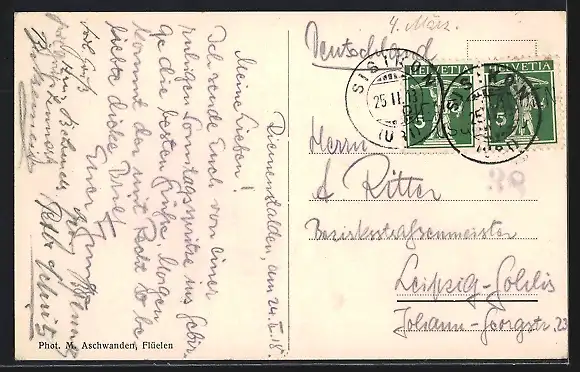 4. März.
Deutschland
HELVETIA
HELVETIA
5
5
SISIKON
25. II.
(URI)
SISIKON
(URI)
Herrn
A Ritter
Bezirksstraßenmeister
Leipzig-Gohlis
Johann-Georgstr. 23
Riemenstalden, am 24. II. 18.
Meine Lieben!
Ich sende Euch von einer
ruhigen Sonntagsspritze ins Gebir-
ge die besten Grüße. Morgen
kommt der mit Recht so be
liebte dicke Brief.
Euer
Phot. M. Aschwanden, Flüelen